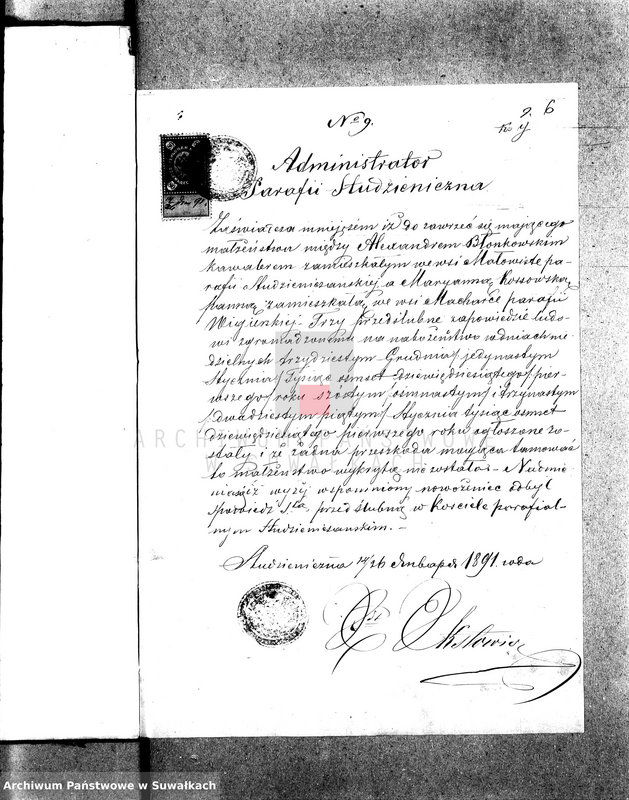 9. 6
No 9.
Administrator
Parafii Studzieniczna
Zaświatcza mniejszem iż do zawrzeć się mającego
małżeństwa między Alexandrem Błonkowskim
kawalerem zamieszkałym we wsi Mołowiste pa-
rafii Studzieniczanskiej a Maryanną Kossowską
panną zamieszkałą we wsi Macharce parafii
Wigierskiej. Trzy przedślubne zapowiedzie ludo-
wi zgromadzonemu na nabożeństwo w dniach nie-
dzielnych trzydziestym Grudnia/ jedynastym
Stycznia/ Tysiąc ośmset dziewięćdziesiątego/ pier-
wszego/ roku szóstym/ ośmnastym/ i trzynastym
/dwudziestym piątym/ Stycznia tysiąc ośmset
dziewięćdziesiątego pierwszego roku ogłoszone zo-
stały i że żadna przeszkoda mogąca tamować
to małżeństwo wykrytą nie została. Nadmie-
niając wyżej wspomniony nowożeniec odbył
spowiedź Stą przedślubną w kosciele parafial-
nym Studzieniczanskim.
Studzieniczna 14/26 Января 1891. roda
ARCHIWUM PAŃSTWOWE
W SUWAŁKACH
Archiwum Państwowe w Suwałkach